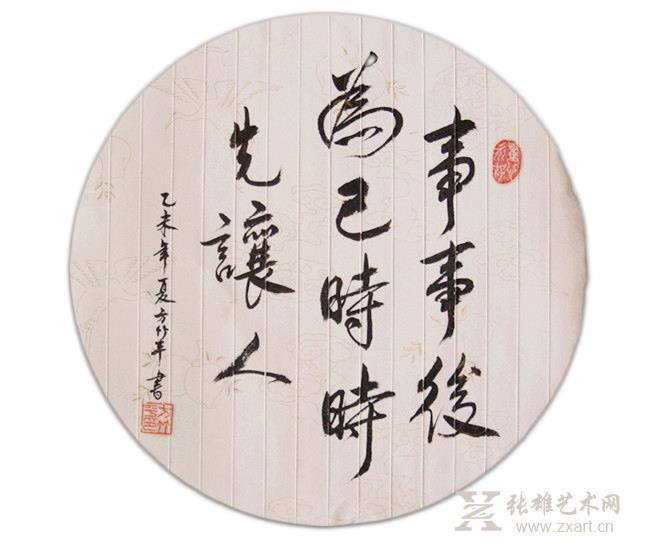 事事後
為己時時
先讓人
乙未年夏方竹平書
张雄艺术网
www.zxart.cn